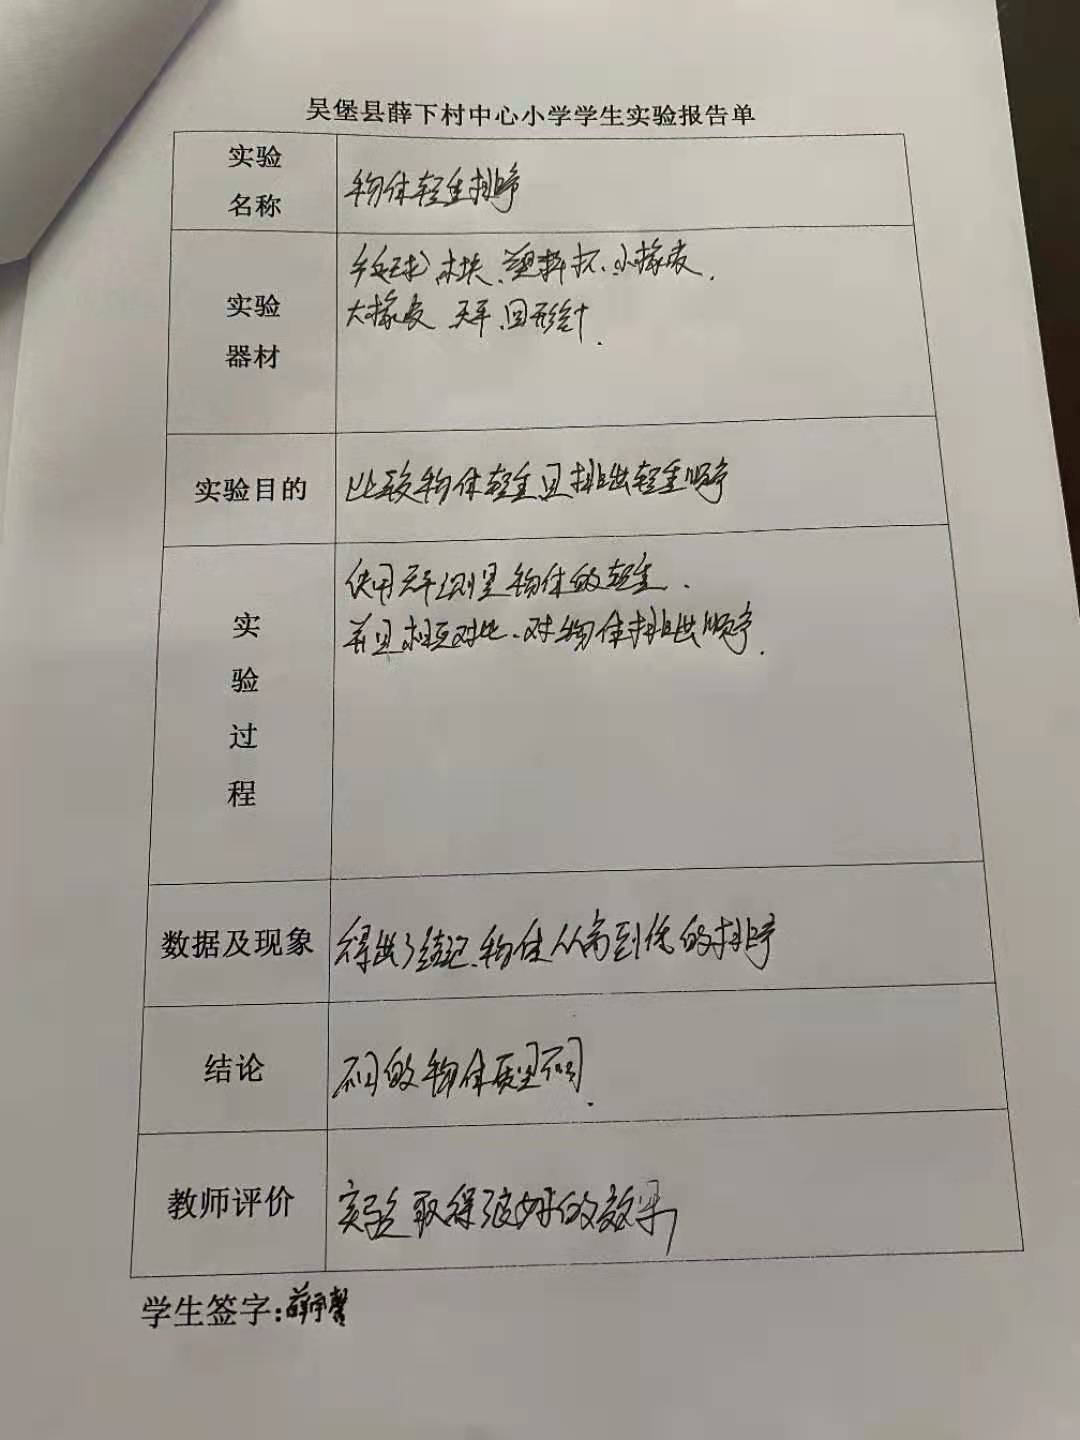 吴堡县薛下村中心小学学生实验报告单
实验
名称
物体轻重排序
实验
器材
乒乓球、木块、塑料杯、小橡皮、
大橡皮 天平、回形针.
实验目的
比较物体轻重且排出轻重顺序
实
验
过
程
使用天平测量物体的轻重.
并且相互对比、对物体排出顺序.
数据及现象
得出了结论、物体从高到低的排序
结论
不同的物体质量不同.
教师评价
实验取得很好的效果
学生签字:薛